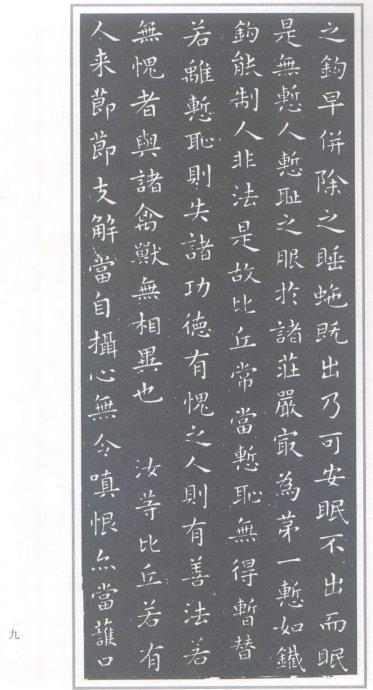 之鉤早併除之睡蛇既出乃可安眠不出而眠
是無慙人慙耻之眼於諸莊嚴㝡為苐一慙如鐵
鉤能制人非法是故比丘常當慙恥無得暫替
若離慙恥則失諸功德有愧之人則有善法若
無愧者與諸禽獸無相異也 汝等比丘若有
人来節節支解當自攝心無令嗔恨亦當護口
九